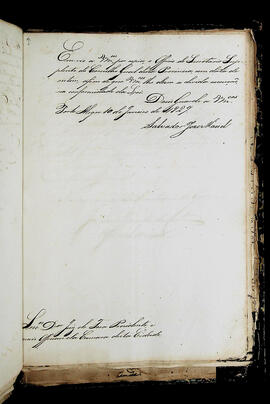 Envio a Vm.ces por copia o Officio do Secretario
do Conselho Geral desta Provincia, em data de
afim de que Vm.ces lhe dem a devida execução,
na conformidade da Lei.
Deos Guarde a Vm.ces
Porto Alegre 10 de Janeiro de 1829
Salvador Jozé Maciel
Snr.es Dr. Juiz de Fora Prezidente e
mais Officiaes da Camara desta Cidade